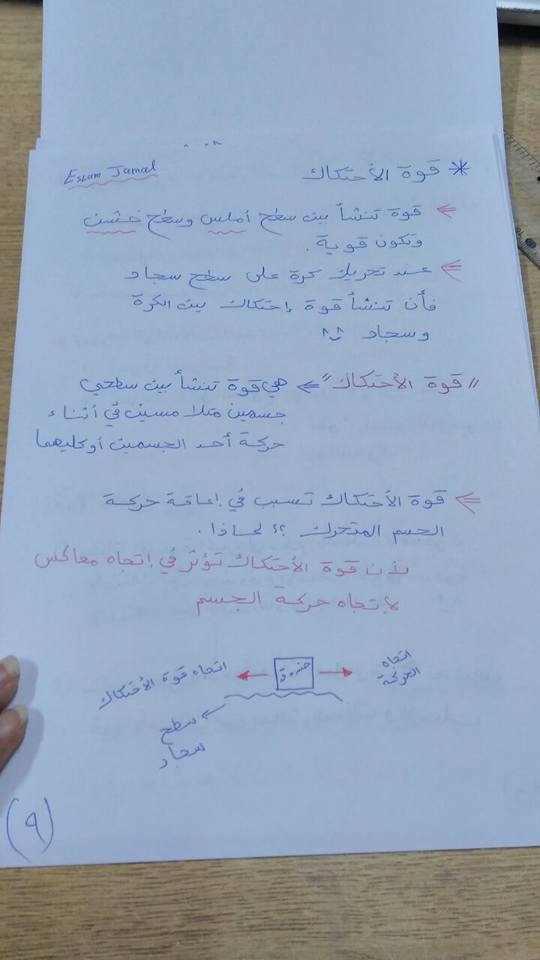 * قوة الأحتكاك
Eslam Jamal
قوة تنشأ بين سطح أملس وسطح خشن
وتكون قوية .
عند تحريك كرة على سطح سجاد
فأن تنشأ قوة إحتكاك بين الكرة
وسجاد !!
"قوة الأحتكاك" هي قوة تنشأ بين سطحي
جسمين متلامسين في أثناء
حركة أحد الجسمين أو كليهما
قوة الأحتكاك تسبب في إعاقة حركة
الجسم المتحرك ؟؟ لماذا .
لأن قوة الأحتكاك تؤثر في إتجاه معاكس
لإتجاه حركة الجسم
اتجاه
الحركة
صندوق
اتجاه قوة الأحتكاك
سطح
سجاد
(٩)